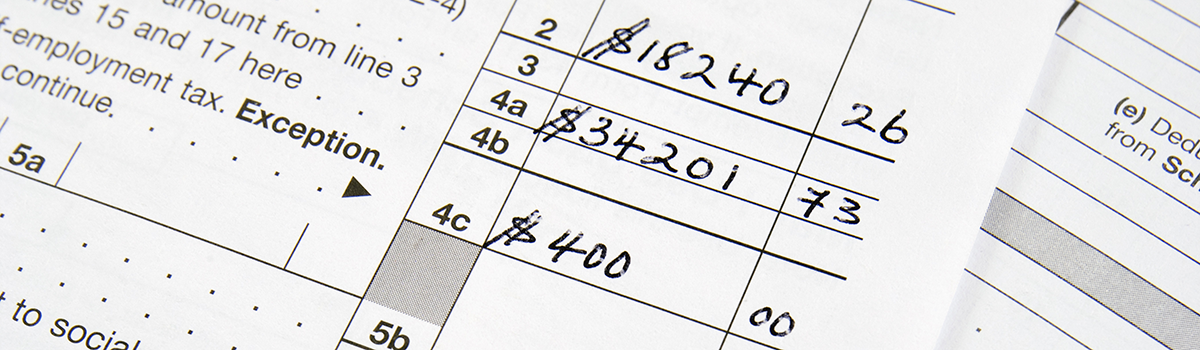 4)
amount from line 3
nes 15 and 17 here
f-employment tax. Exception.
continue.
2 $18240 26
3
4a $34201 73
4b
4c $400 00
5a
5b
t to social
(e) Dedu
from Sch